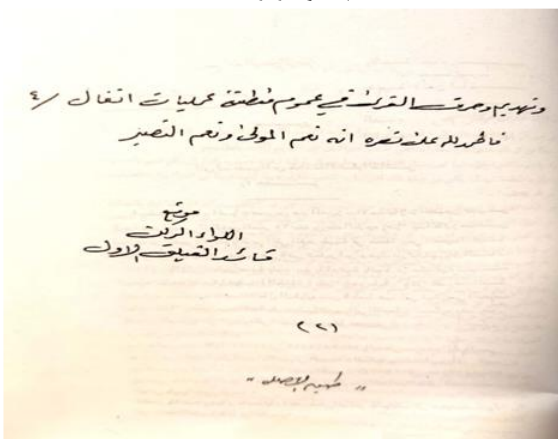 وتهديم وحرق القرى في عموم منطقة عمليات انفال /٤
فالحمد لله على نصره انه نعم المولى ونعم النصير
موقع
اللواء الركن
قائد الفيلق الاول
(٢٦)